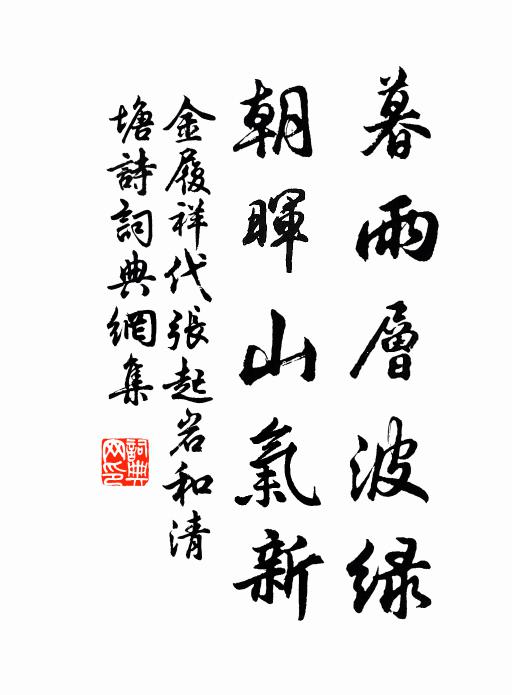 暮雨層波緑
朝暉山氣新
金履祥代張起岩和清
塘詩詞典網集
詞典網印